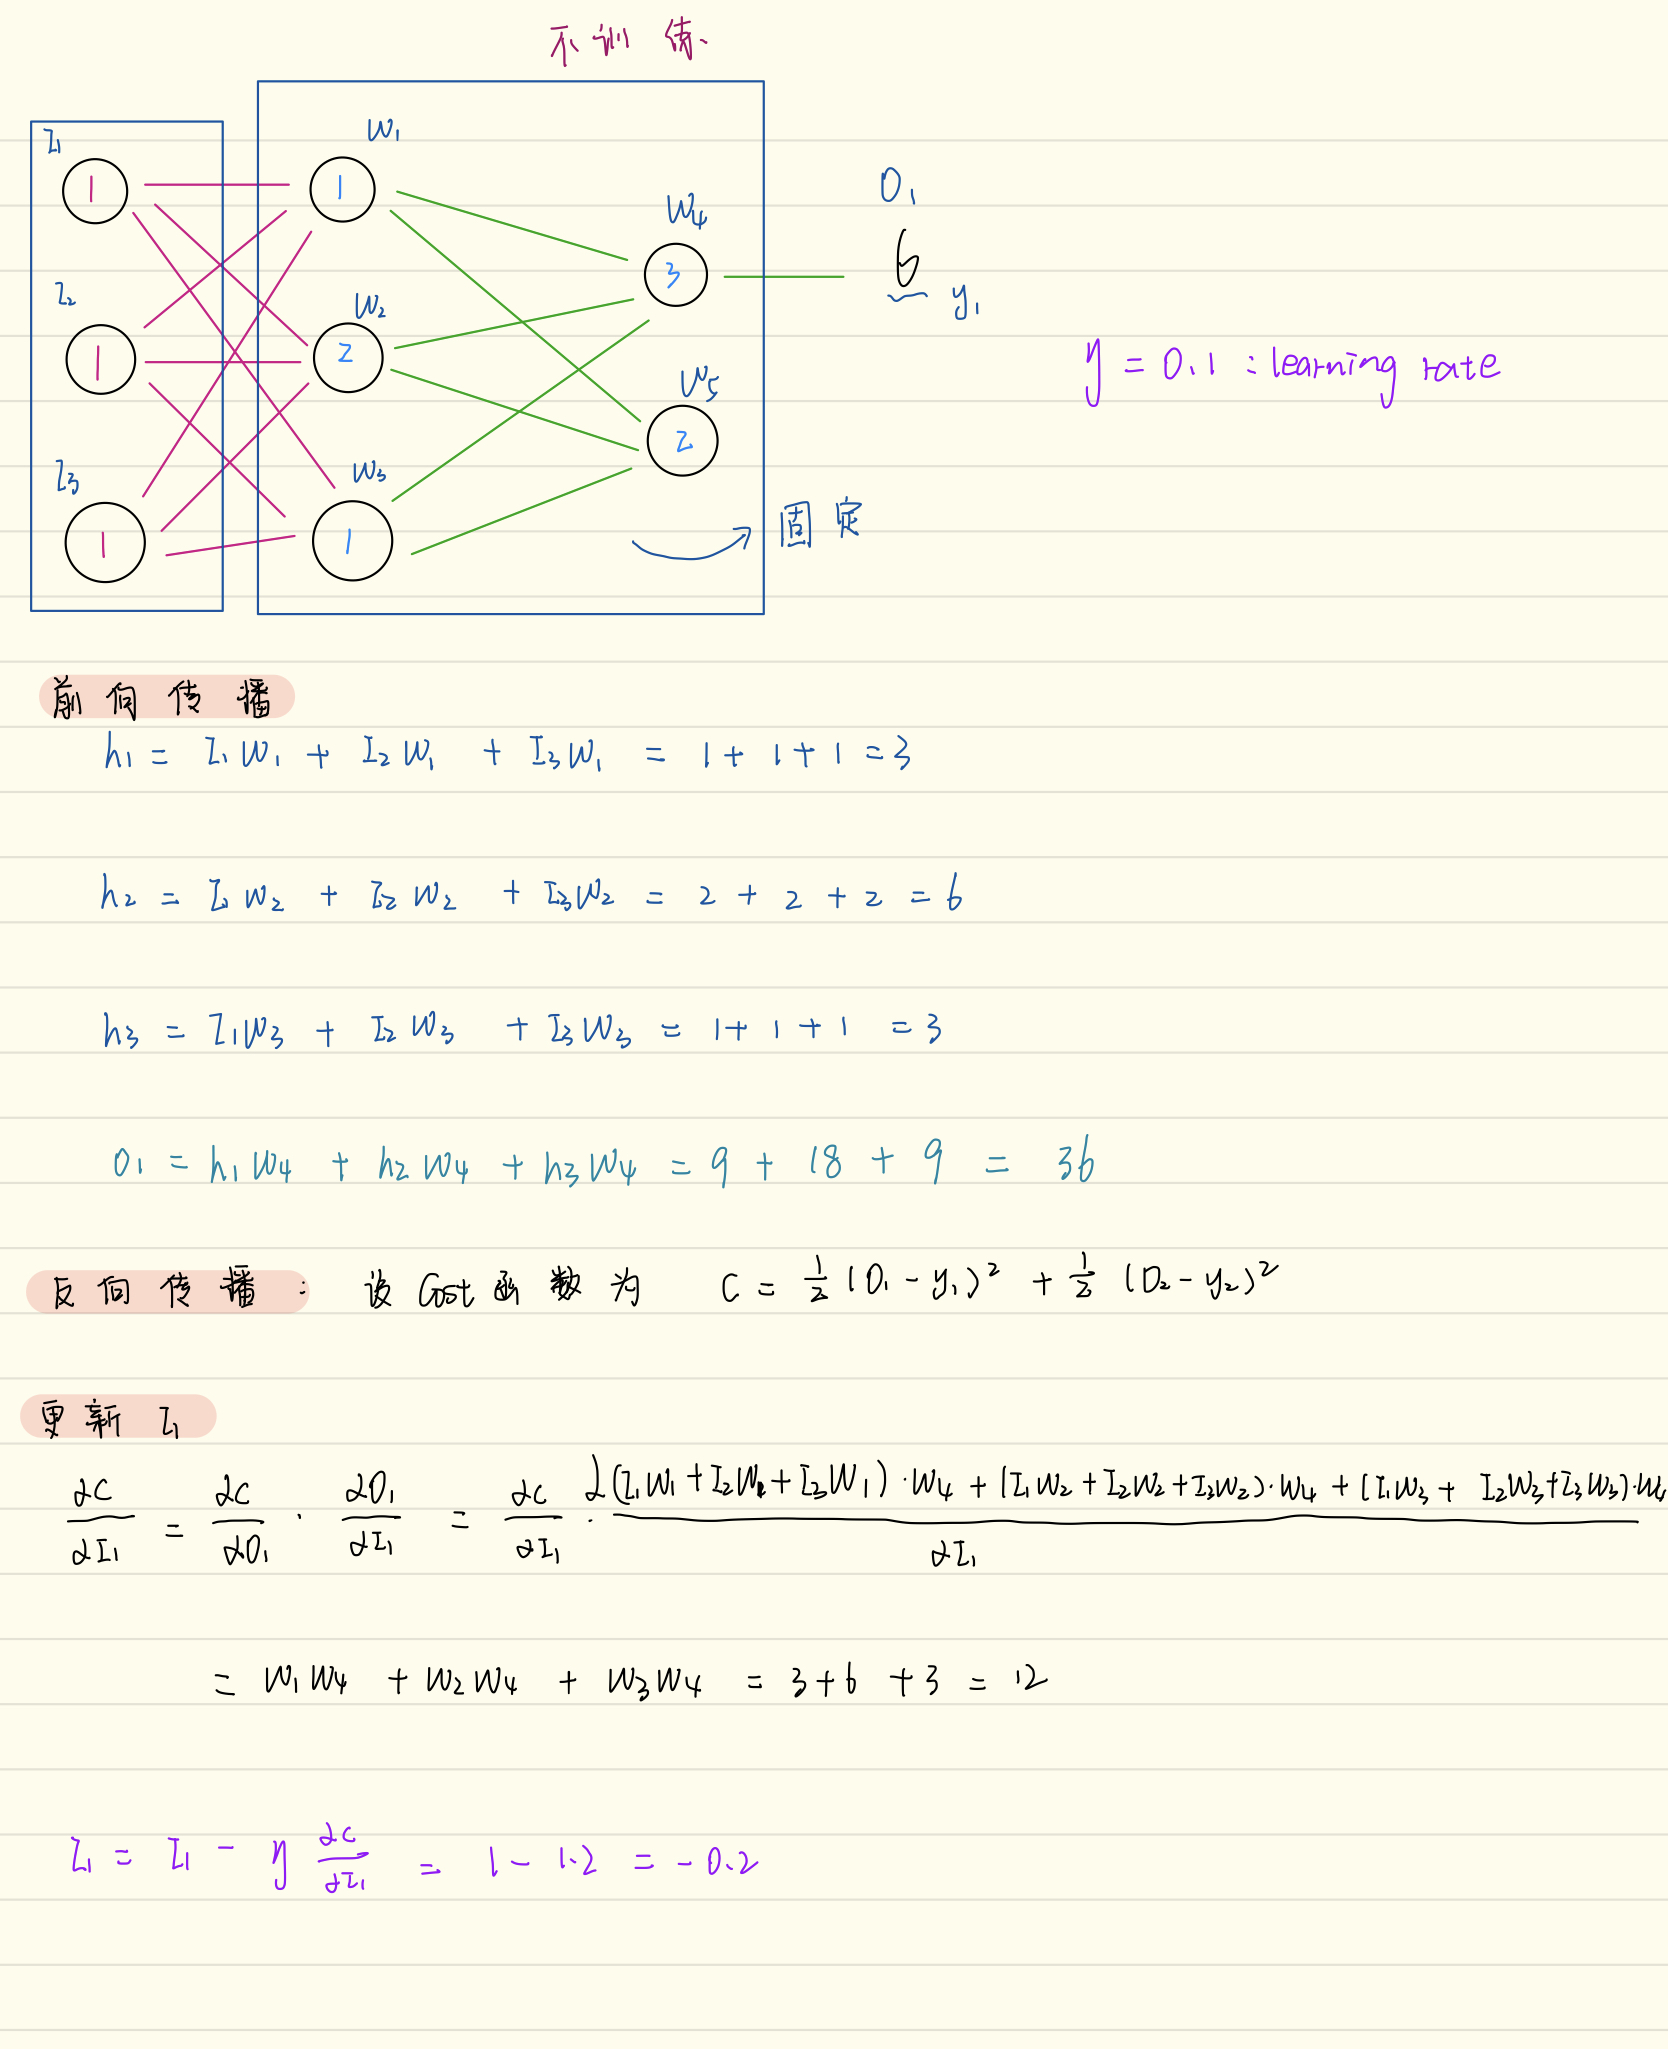 不训练
I₁ W₁
1 1
O₁
W₄
6 y₁
3
I₂ W₂
1 2
η = 0.1 : learning rate
W₅
2
I₃ W₃
1 1
固定
前向传播
h₁ = I₁W₁ + I₂W₁ + I₃W₁ = 1 + 1 + 1 = 3
h₂ = I₁W₂ + I₂W₂ + I₃W₂ = 2 + 2 + 2 = 6
h₃ = I₁W₃ + I₂W₃ + I₃W₃ = 1 + 1 + 1 = 3
O₁ = h₁W₄ + h₂W₄ + h₃W₄ = 9 + 18 + 9 = 36
反向传播: 设 Cost 函数为 C = ½(O₁ - y₁)² + ½(O₂ - y₂)²
更新 I₁
∂C/∂I₁ = ∂C/∂O₁ · ∂O₁/∂I₁ = ∂C/∂I₁ · ∂(I₁W₁ + I₂W₁ + I₃W₁)·W₄ + (I₁W₂ + I₂W₂ + I₃W₂)·W₄ + (I₁W₃ + I₂W₃ + I₃W₃)·W₄/∂I₁
= W₁W₄ + W₂W₄ + W₃W₄ = 3 + 6 + 3 = 12
I₁ = I₁ - η ∂C/∂I₁ = 1 - 1.2 = -0.2